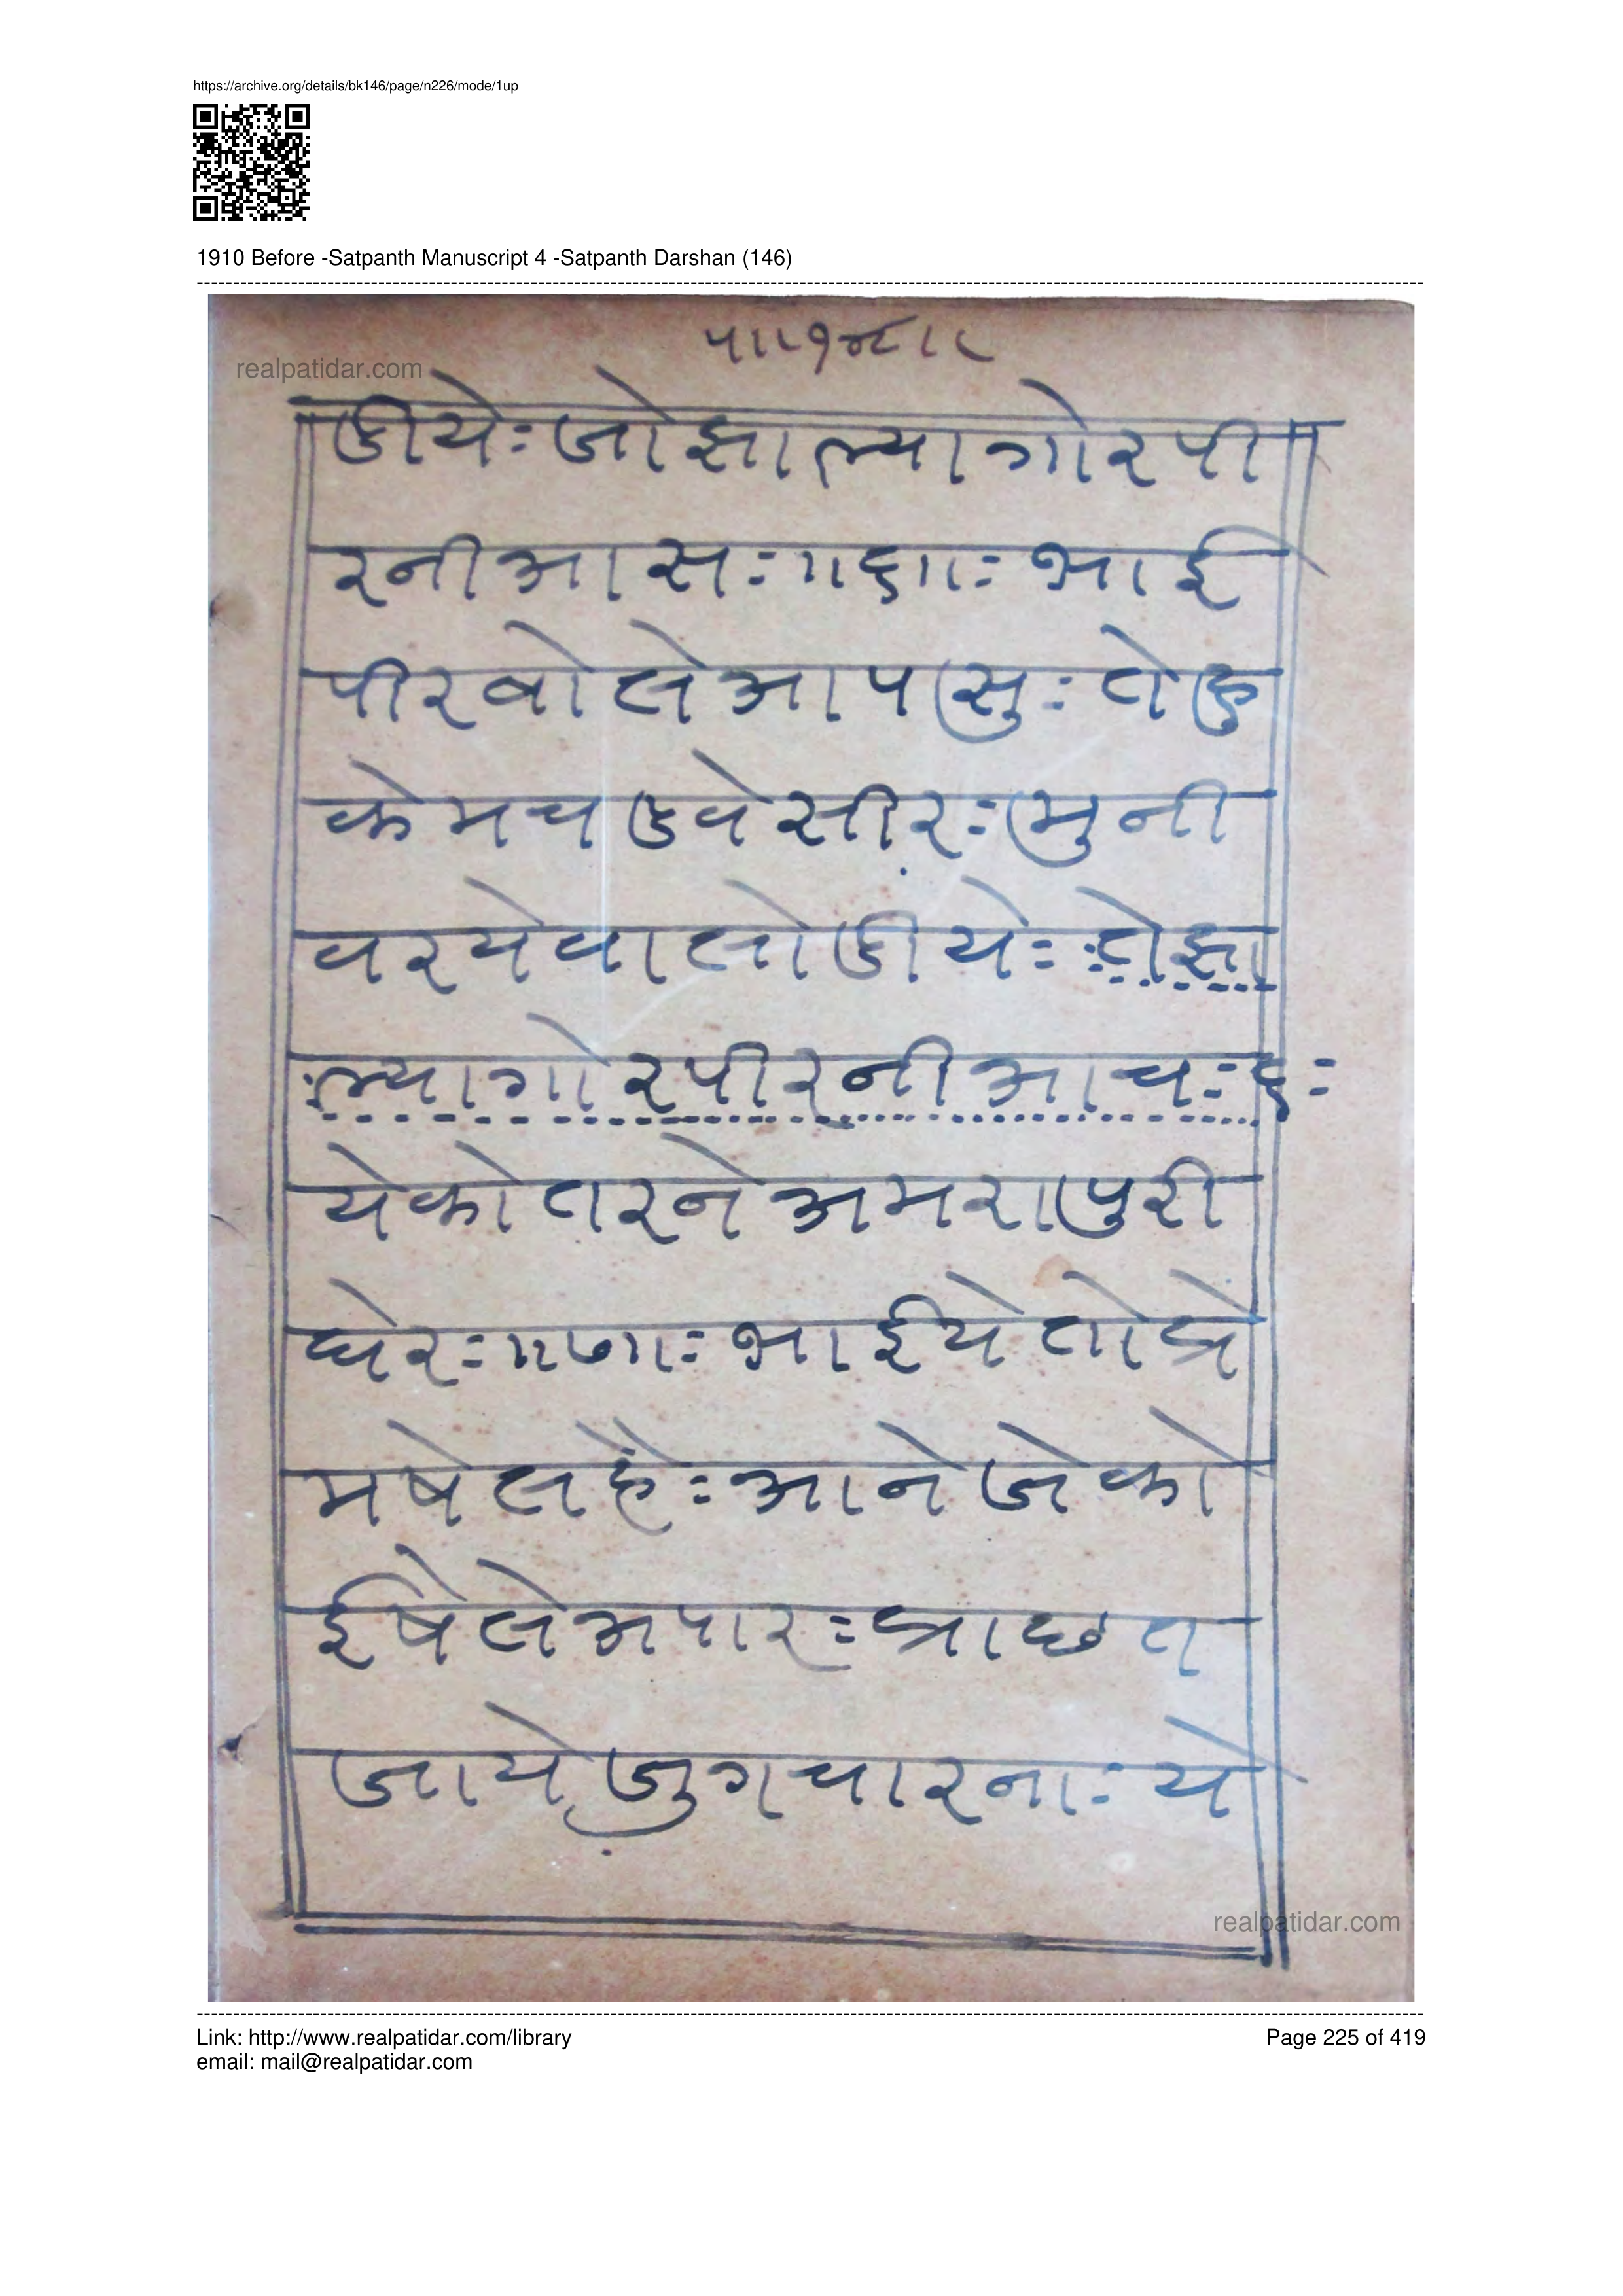 https://archive.org/details/bk146/page/n226/mode/1up
1910 Before -Satpanth Manuscript 4 -Satpanth Darshan (146)
realpatidar.com
डीये: जो झाल्या गोर पी
र नी आस: ॥६॥: भाई
पीर बोले आप सु: तो हु
केम चडवे सीर: मुनी
वर येवा लोडीये: तो झा
ल्या गोर पीर नी आच: ६:
येकोतर ने अमरापुरी
घेर: ॥७॥: भाई ये तो प्रे
म षेल है: आने जे को
ई षैले अपार: प्राछत
जाये जुग चारना: ये
realpatidar.com
Link: http://www.realpatidar.com/library
Page 225 of 419
email: mail@realpatidar.com